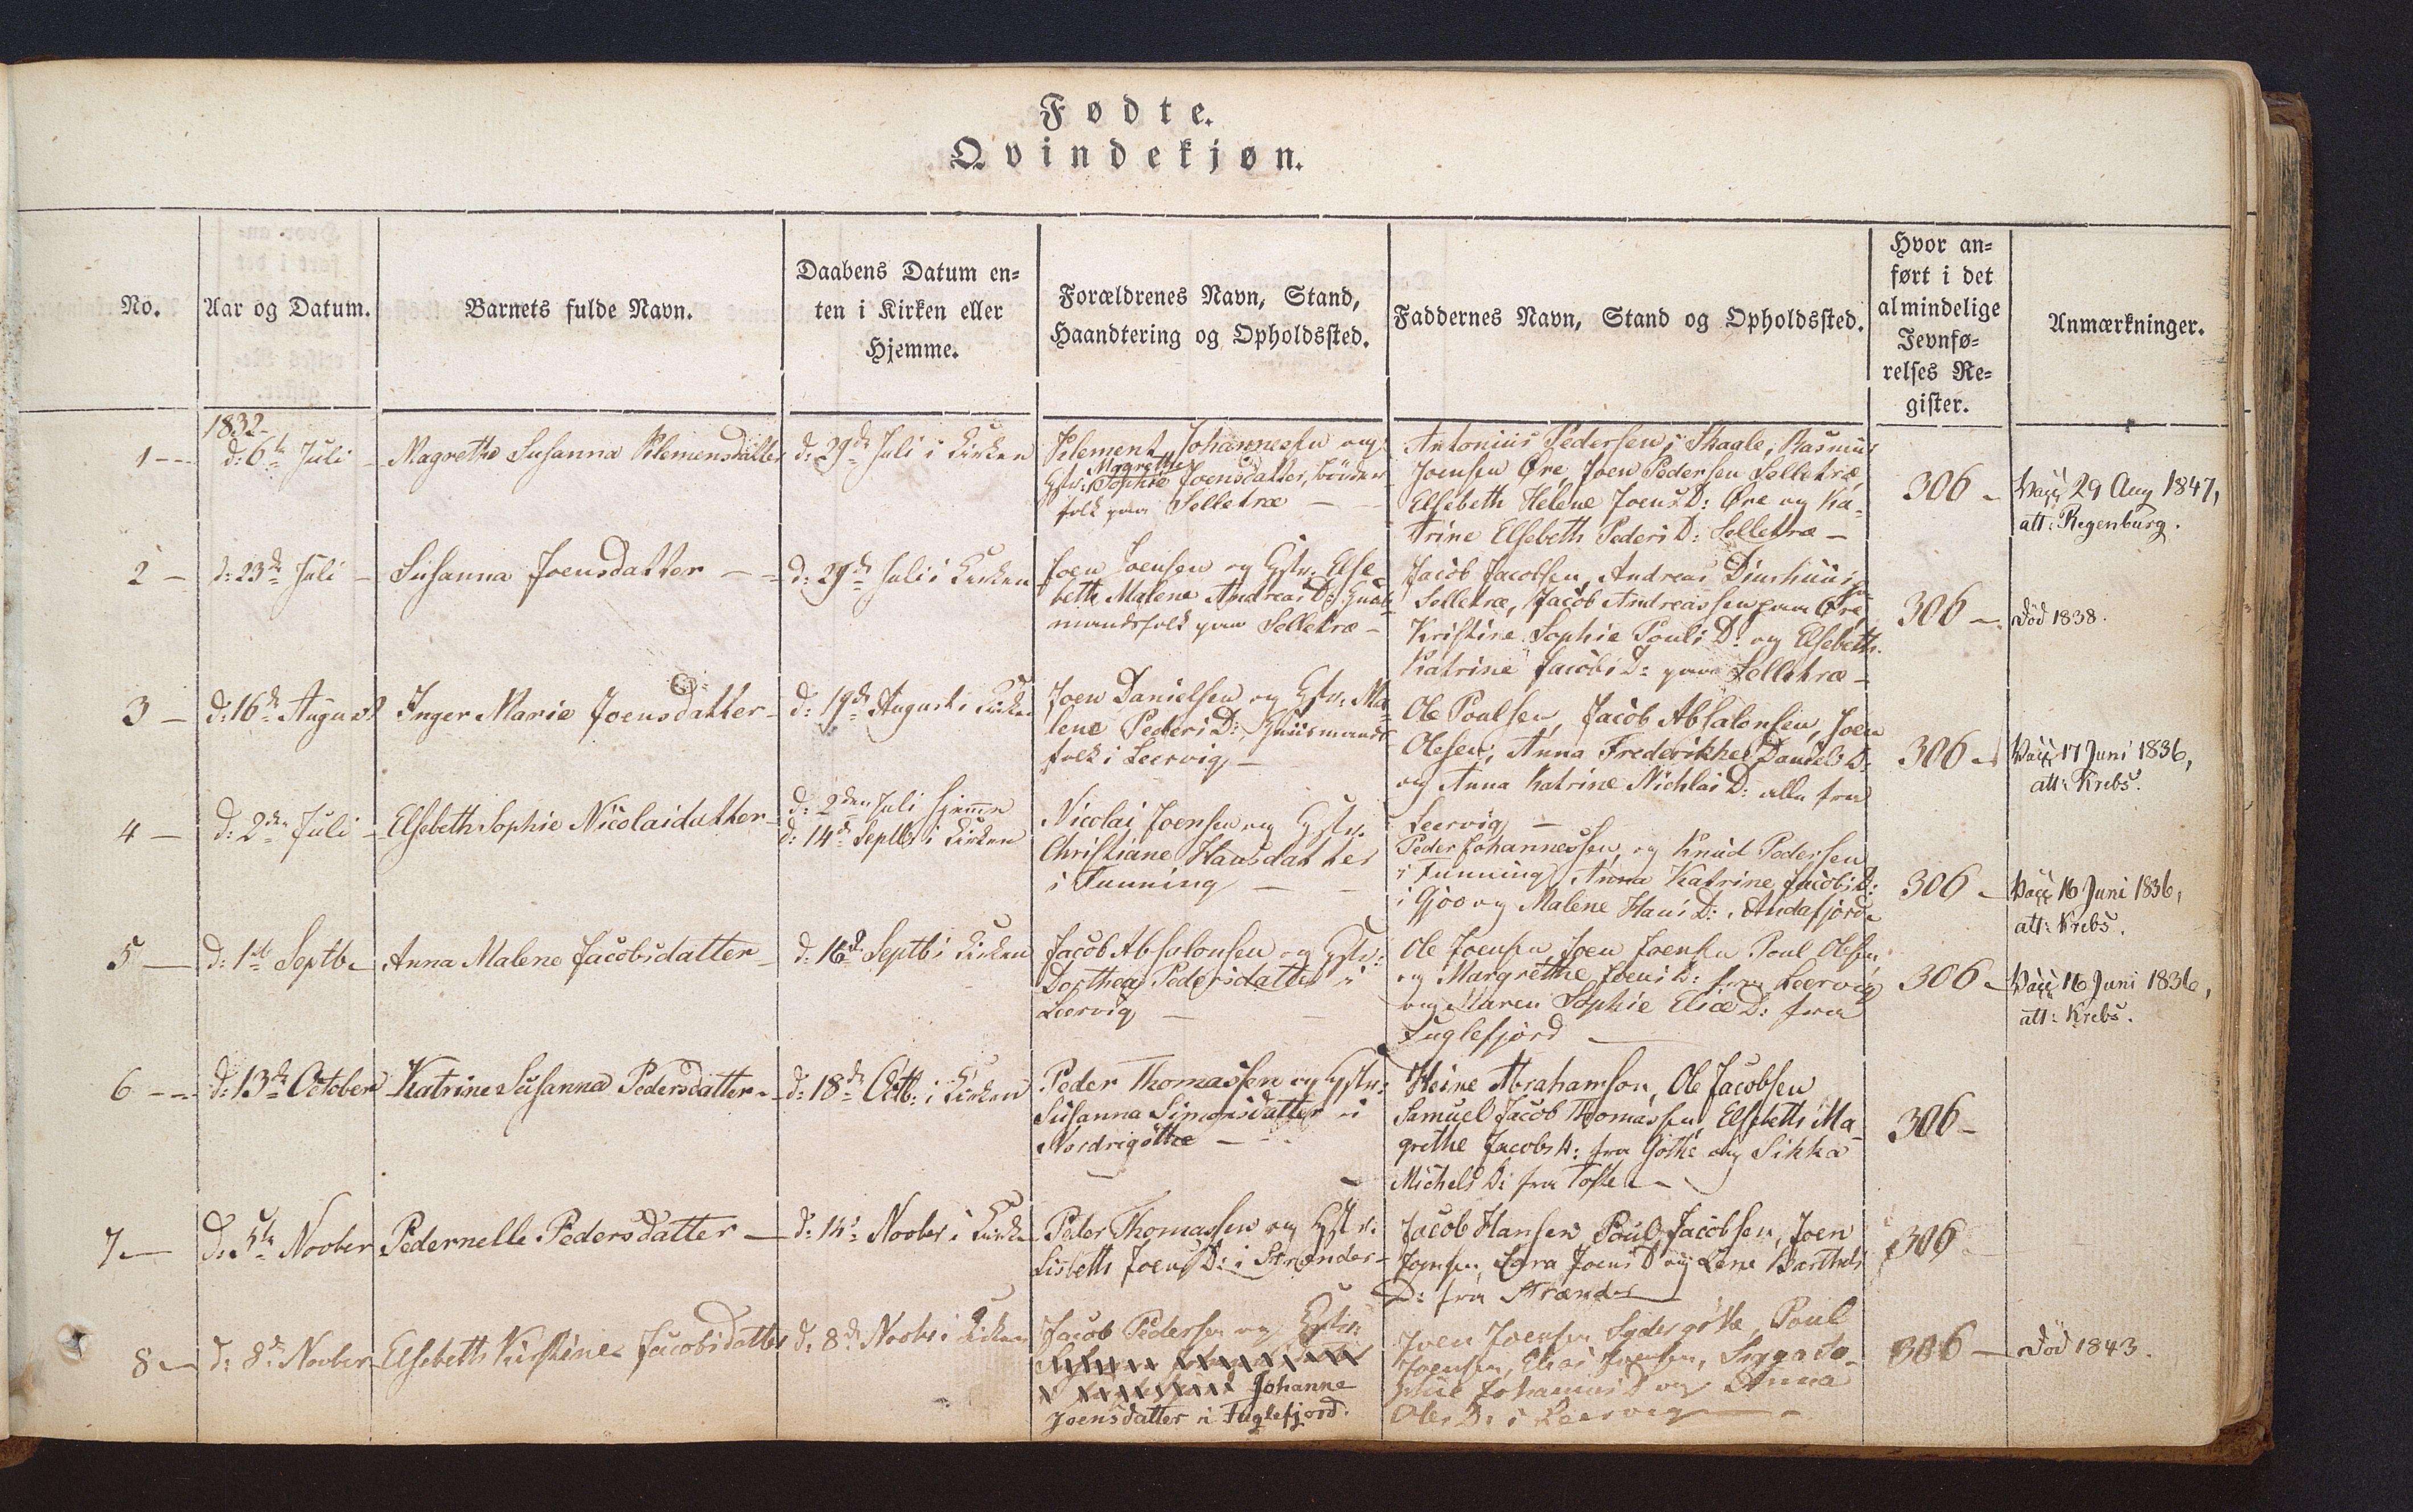 Fødte.
Qvindekjøn.
No.
Aar og Datum.
Barnets fulde Navn.
Daabens Datum en-
ten i Kirken eller
Hjemme.
Forældrenes Navn, Stand,
Haandtering og Opholdssted.
Faddernes Navn, Stand og Opholdssted.
Hvor an-
ført i det
almindelige
Jevnfø-
relses Re-
gister.
Anmærkninger.
1832
1
d: 6te Juli
Magrethe Susanna Klemensdatter
d: 29de Juli i Kirken
Klement Johannessen og
Magrethe
Hstr: Sophie Joensdatter, bönder
folk paa Selletræ
Antonius Pedersen, Skaale, Rasmus
Joensen Øre, Joen Pedersen Selletræ
Elsebeth Helene Joens D: Øre og Ka-
trine Elsebeth Peders D: Selletræ
306
Vacc 29 Aug 1847,
att: Regenburg.
2
d: 23de Juli
Susanna Joensdatter
d: 29de Juli i Kirken
Joen Joensen og Hstr. Else
beth Malene Andreas D:
mandsfolk paa Selletræ
Jacob Jacobsen, Andreas
Selletræ, Jacob Andreassen paa Øre
Kristine Sophie Pouls D: og Elsebeth
Katrine Jacobs D: paa Selletræ
306
Död 1838.
3
d: 16de August
Inger Marie Joensdatter
d: 19de August i Kirken
Joen Danielsen og Hstr: Ma-
lene Peders D: Huusmands
folk i Leervig
Ole Poulsen, Jacob Absalonsen, Joen
Olesen, Anna Frederikke Daniels D:
og Anna Katrine Nichlai D: alle fra
Leervig
306
Vacc 17 Juni 1836,
att: Krebs.
4
d: 2den Juli
Elsebeth Sophie Nicolaidatter
d: 2den Juli hjemme
d: 14de Septb i Kirken
Nicolai Joensen og Hstr.
Christiane Hansdatter
i Funning
Peder Johannessen og Knud Pedersen
i Funning Anna Katrine Jacobs D:
i Gjov og Malene Hans D: Andafjorde
306
Vacc 16 Juni 1836,
att: Krebs.
5
d: 1ste Septb
Anna Malene Jacobsdatter
d: 16de Septb i Kirken
Jacob Absalonsen og Hstr:
Dorthea Pedersdatter i
Leervig
Ole Joensen, Joen Joensen Poul Olesen
og Margrethe Joens D: fra Leervig
og Maren Sophie Eliæ D: fra
Fuglefjord
306
Vacc 16 Juni 1836,
att: Krebs.
6
d: 13de October
Katrine Susanna Pedersdatter
d: 18de Octb: i Kirken
Peder Thomassen og Hstr:
Susanna Simonsdatter i
Nordrigöthe
Heine Abrahamson, Ole Jacobsen
Samuel Jacob Thomassen, Elsebeth Ma-
grethe Jacobs D: fra Göthe og Sikka
Michels D: fra Tofte
306
7
d. 5te Novber
Pedernelle Pedersdatter
d: 14: Novber i Kirken
Peder Thomassen og Hstr:
Lisbeth Joens D: i Strænder
Jacob Hansen, Poul Jacobsen, Joen
Joensen, Sara Joens D og Lene Barthels
D: fra Strænder
306
8
d: 8de Novber
Elsebeth Kirstine Jacobsdatter
d. 8de Novbr i Kirken
Jacob Pedersen og Hstr:
Johanne
Joensdatter i Fuglefjord.
Joen Joensen Sydergöthe, Poul
Joensen, Elias Joensen, Sigga So-
phie Johannis D og Anna
Oles D: i Leervig
306
Död 1843.